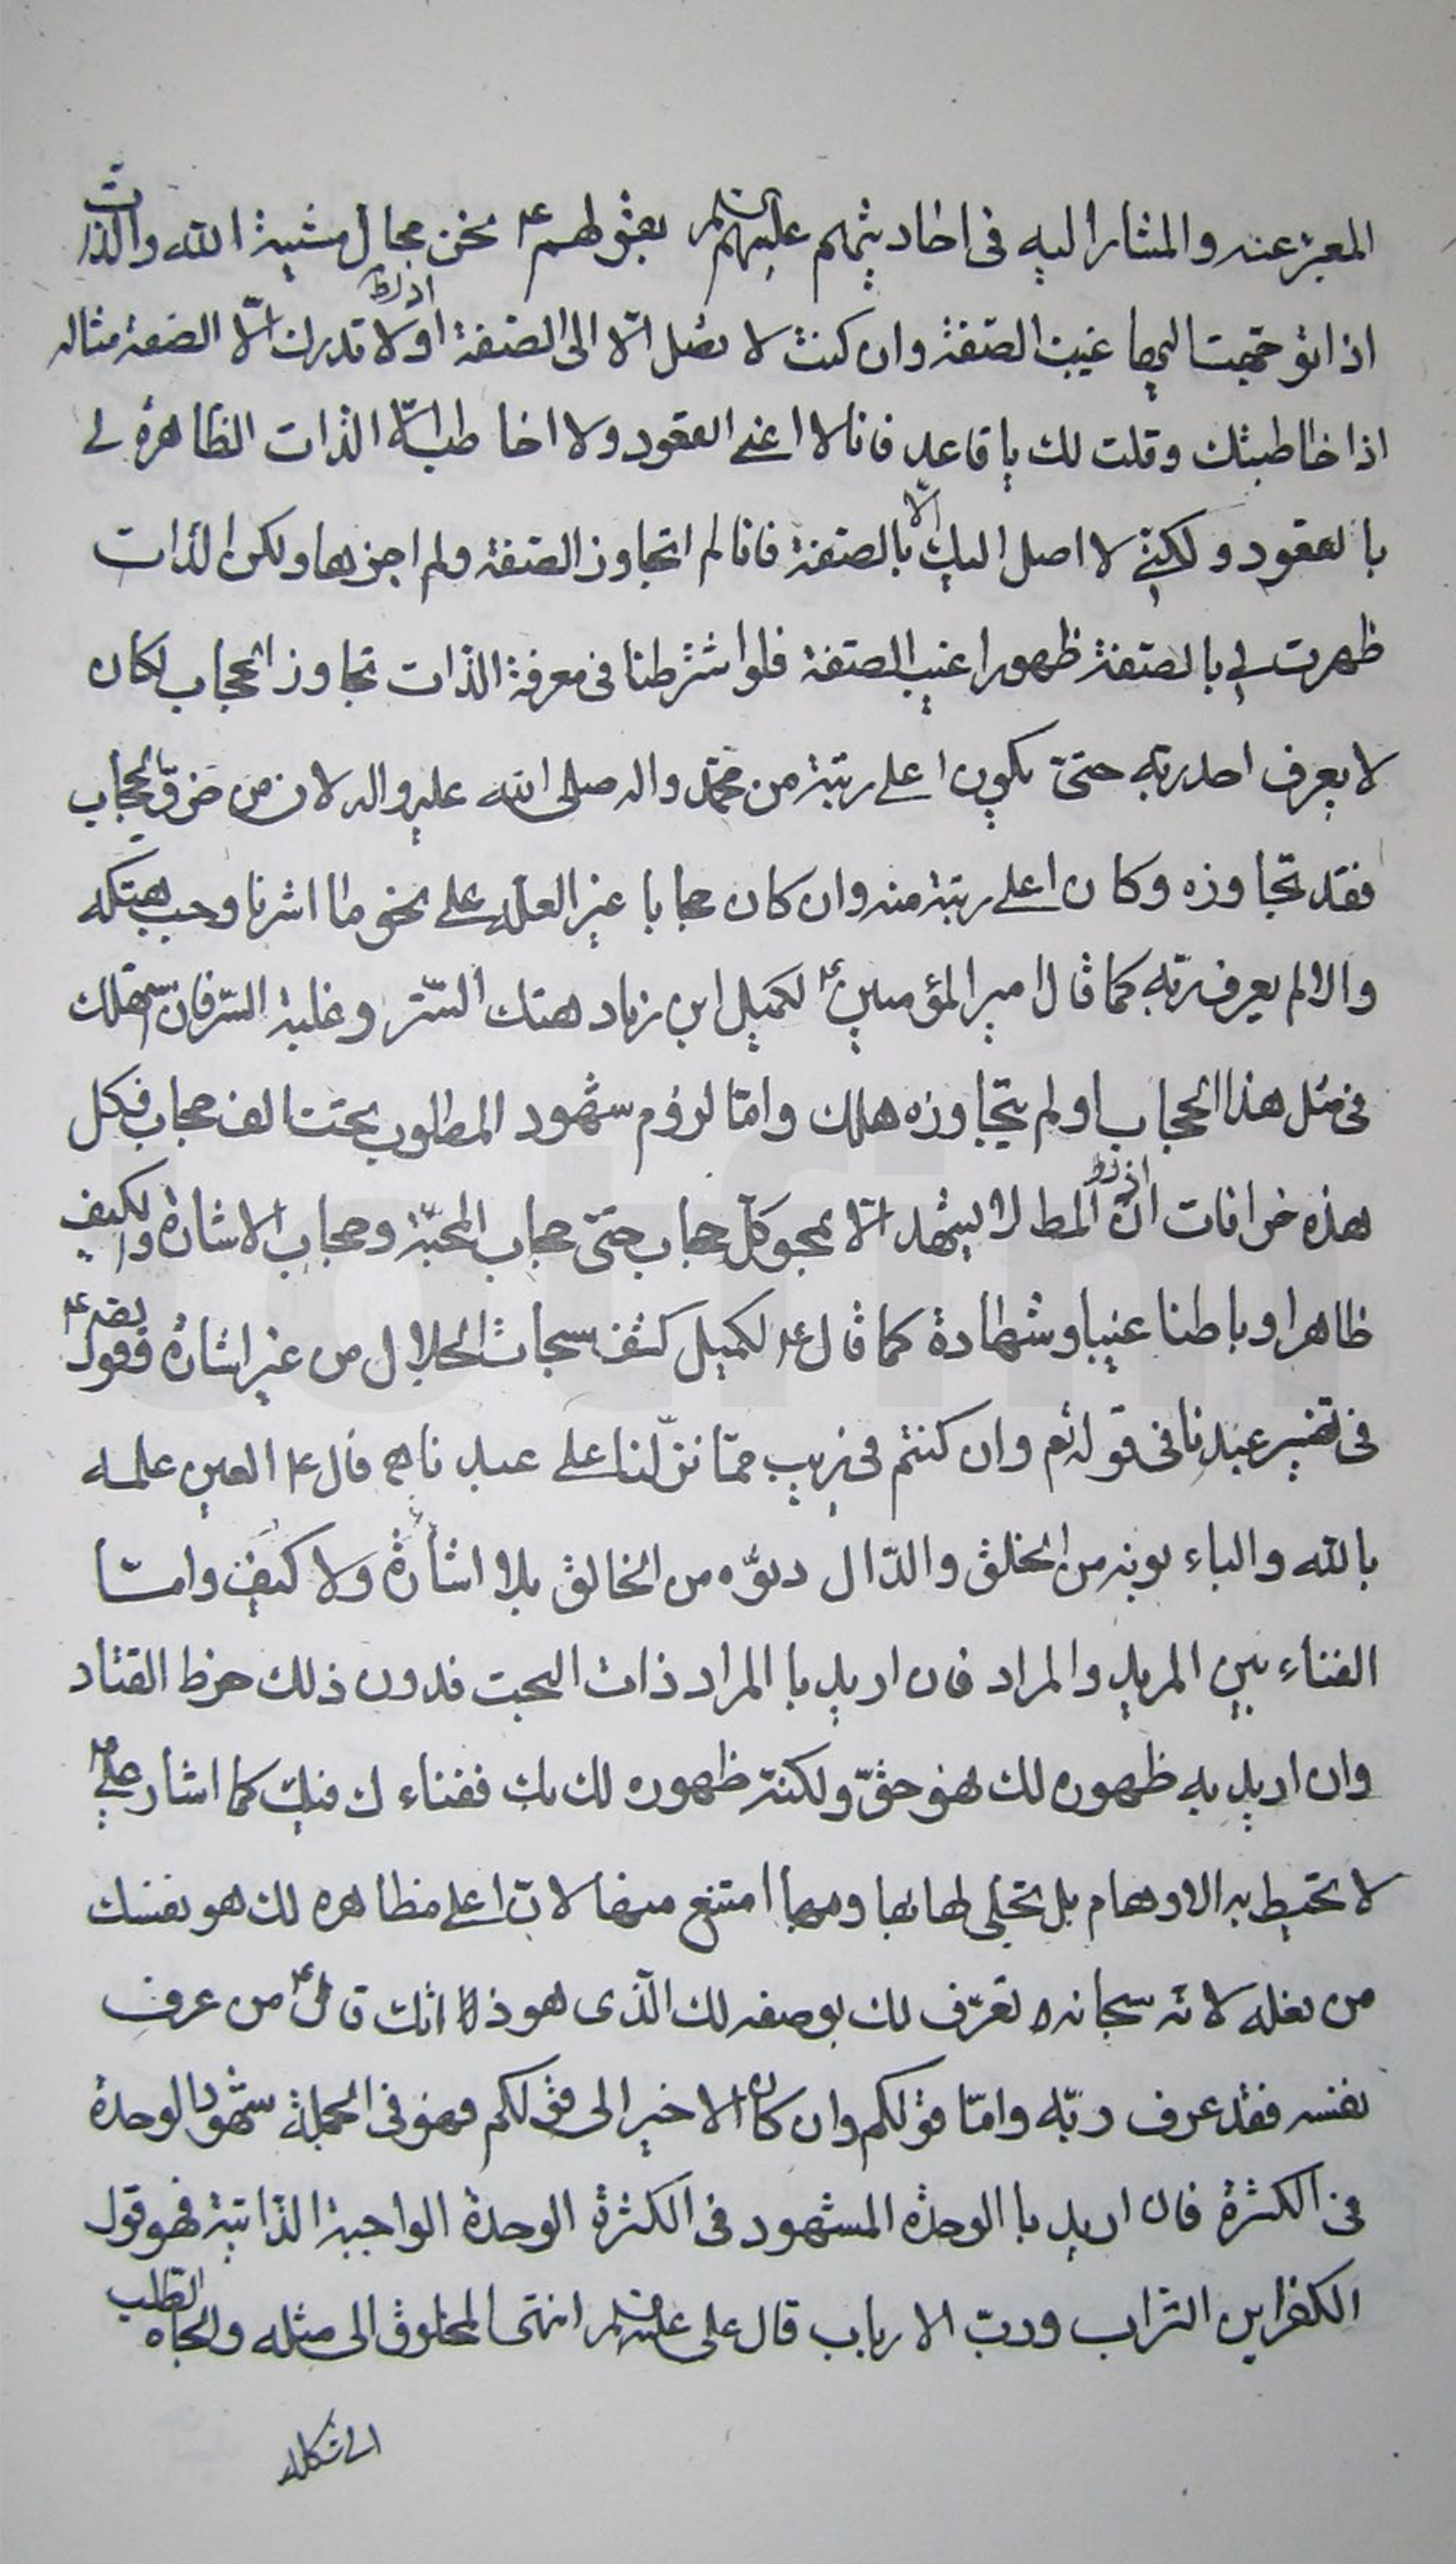 المعبر عنه والمشار اليه فى احاديثهم عليهم السلم بقولهم ع نحن محال مشية الله والذات
اذا توجهت اليها غيبت الصفة وان كنت لا تصل الّا الى الصفة اولا تدرك الّا الصفة مثاله
اذا خاطبتك وقلت لك يا قاعد فانا لا اعنى القعود ولا اخاطب الّا الذات الظاهرة لى
بالقعود ولكنى لا اصل اليك الّا بالصفة فانا لم اتجاوز الصفة ولم اجزها ولكن الذات
ظهرت لى بالصفة ظهورا غيب الصفة فلو اشترطنا فى معرفة الذات تجاوز الحجاب لكان
لا يعرف احد ربه حتى يكون اعلى رتبة من محمد واله صلى الله عليه واله لان من خرق الحجاب
فقد تجاوزه وكان اعلى رتبة منه وان كان حجابا غير العلة على نحو ما اشرنا وجب هتكه
والا لم يعرف ربه كما قال امير المؤمنين ع لكميل ابن زياد هتك الستر وغلبة السر فان هلك
فى مثل هذا الحجاب او لم يتجاوزه هلك وامّا لزوم شهود المطلوب تحت الف حجاب فكل
هذه خرافات انّ المط لا يشهد الّا بمحو كل حجاب حتى حجاب المحبة وحجاب الاشارة والكيف
ظاهرا وباطنا غيبا وشهادة كما قال ع لكميل كشف سبحات الجلال من غير اشارة وقول
فى تفسير عبدنا فى قوله تع وان كنتم فى ريب ممّا نزّلنا على عبدنا قال ع العين علمه
بالله والباء بونه من الخلق والدّال دنوّه من الخالق بلا اشارة ولا كيف وامّا
الفناء بين المريد والمراد فان اريد با المراد ذات البحت فدون ذلك خرط القتاد
وان اريد به ظهوره لك فهو حقّ ولكنّه ظهوره لك بك ففناءك فيك كما اشار على ع
لا تحيط به الاوهام بل تجلى لها بها وبها امتنع منها لانّ اعلى مظاهره لك هو نفسك
من فعله لانه سبحانه تعرّف لك بوصفه لك الّذى هو ذاتك قال ع من عرف
نفسه فقد عرف ربّه وامّا قولكم وان كان الاخير الى قولكم فهو فى الجملة شهود الوحدة
فى الكثرة فان اريد با الوحدة المشهود فى الكثرة الوحدة الواجبة الذاتية فهو قول
الكفر اين التراب وربّ الارباب قال على عليه السلم انتهى المخلوق الى مثله والجاه الطّلب
الى شكله